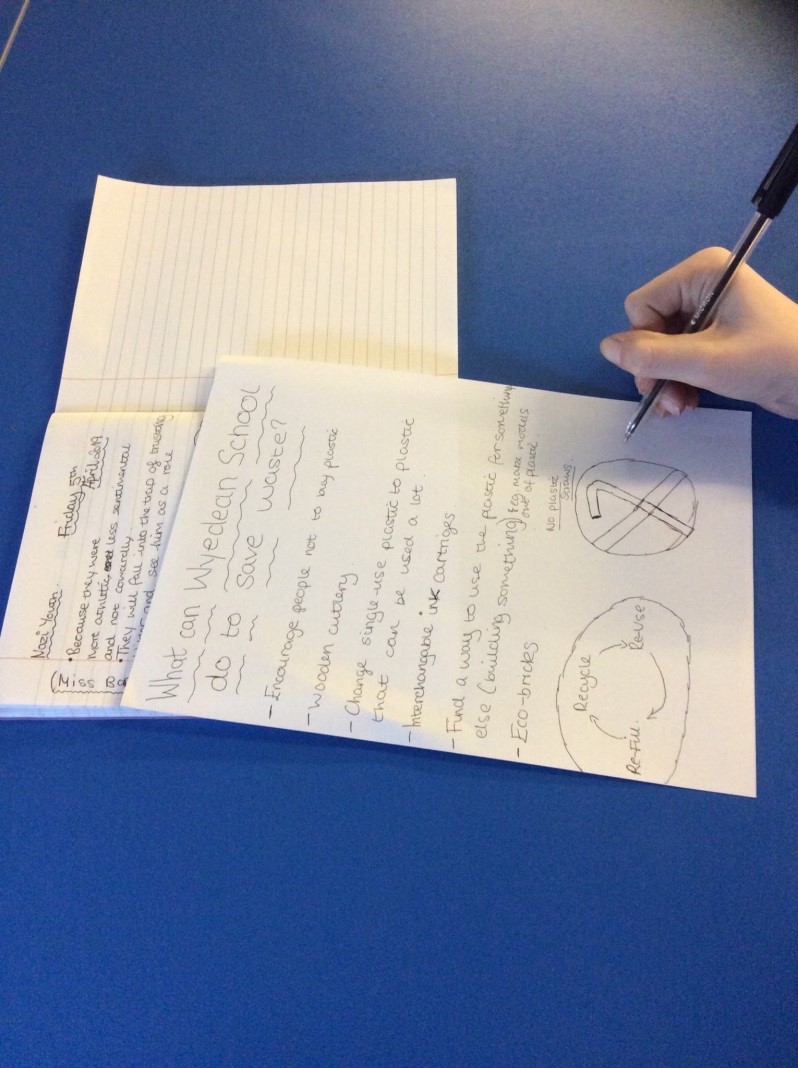 What can Wyedean School
do to save waste?
- Encourage people not to buy plastic
- Wooden cutlery.
- Change single-use plastic to plastic
that can be used a lot.
- Interchangable ink cartriges
- Find a way to use the plastic for something
else (building something) & eg make models
out of plastic.
- Eco-bricks
No plastic
straws.
Recycle
Re-use
Re-fill.
Nazi Youth.
Friday 5th
April 2019
• Because they were
more athletic and less sentimental
and not cowardly.
• They will fall into the trap of trusting
and see him as a role
(Mien